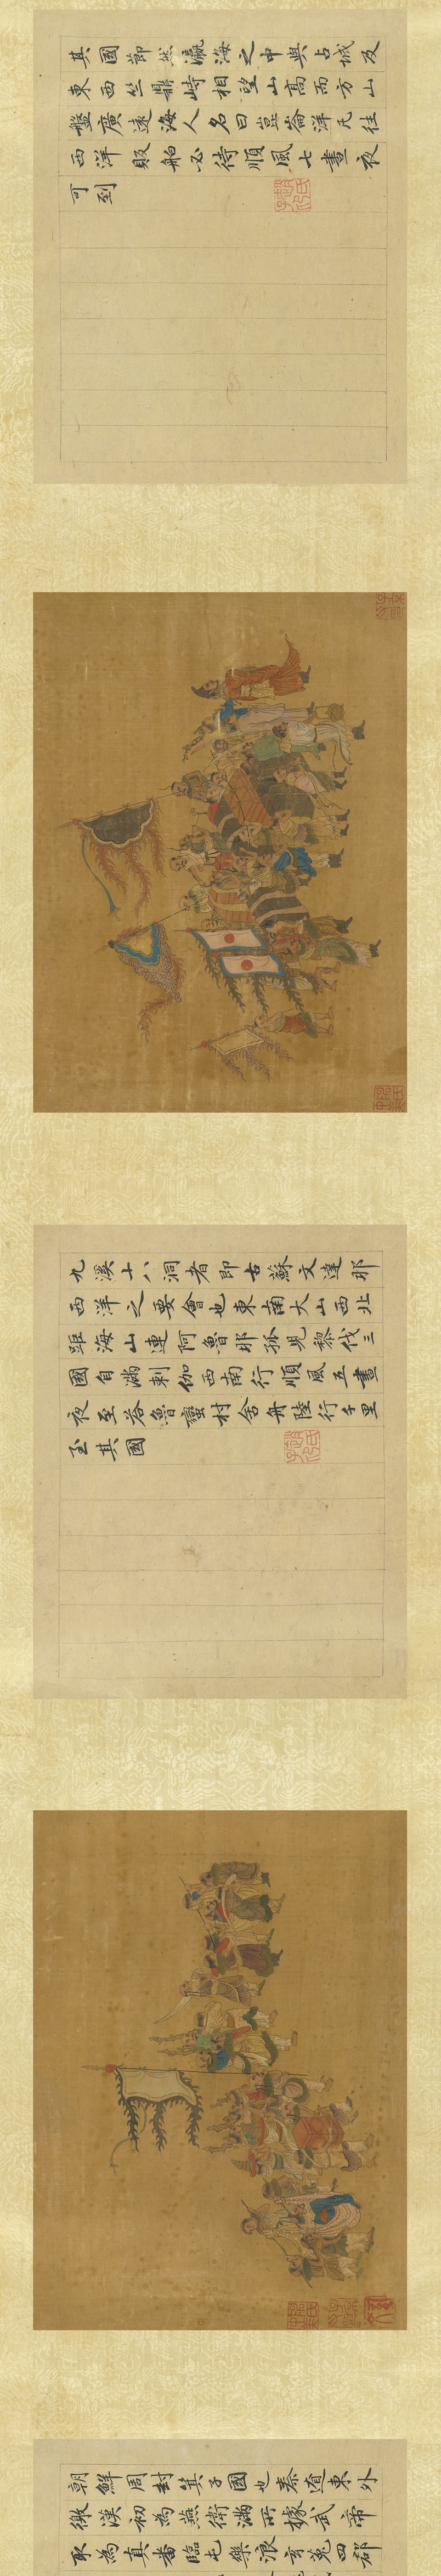 其國節然瀛海之中與占城及
東西竺鼎峙相望山高而方山
盤廣遠海人名曰崑崙洋凡往
西洋販船必待順風七晝夜
可到
九溪十八洞者即古蘇文達那
西洋之要會也東南大山西北
距海山連阿魯耶孤兒黎代三
國自滿刺伽西南行順風五晝
夜至荅魯蠻村舍舟陸行千里
至其國
朝鮮周封箕子國也秦遼東外
徼漢初為燕衛滿所據武帝
取為真番臨屯樂浪玄菟四郡